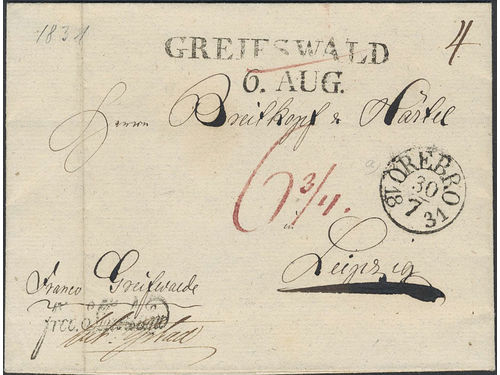 1831
4
GREIFSWALD
6. AUG.
Herrn Breitkopf & Härtel
6 3/4.
ÖREBRO
30
7
1831
Leipzig
Franco Greifswalde